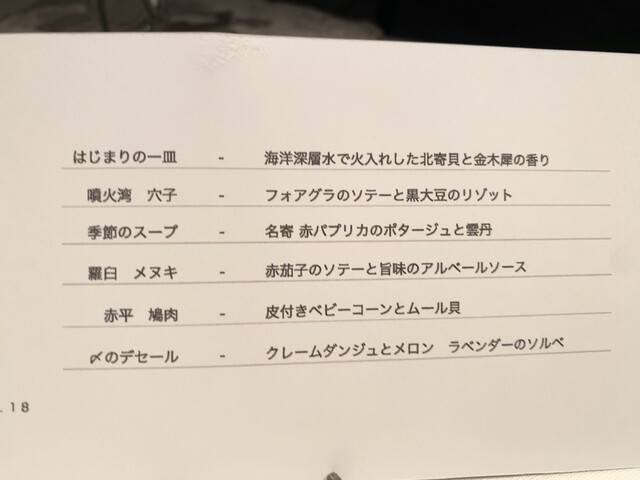 はじまりの一皿 - 海洋深層水で火入れした北寄貝と金木犀の香り
噴火湾 穴子 - フォアグラのソテーと黒大豆のリゾット
季節のスープ - 名寄 赤パプリカのポタージュと雲丹
羅臼 メヌキ - 赤茄子のソテーと旨味のアルベールソース
赤平 鳩肉 - 皮付きベビーコーンとムール貝
〆のデセール - クレームダンジュとメロン ラベンダーのソルベ
.18